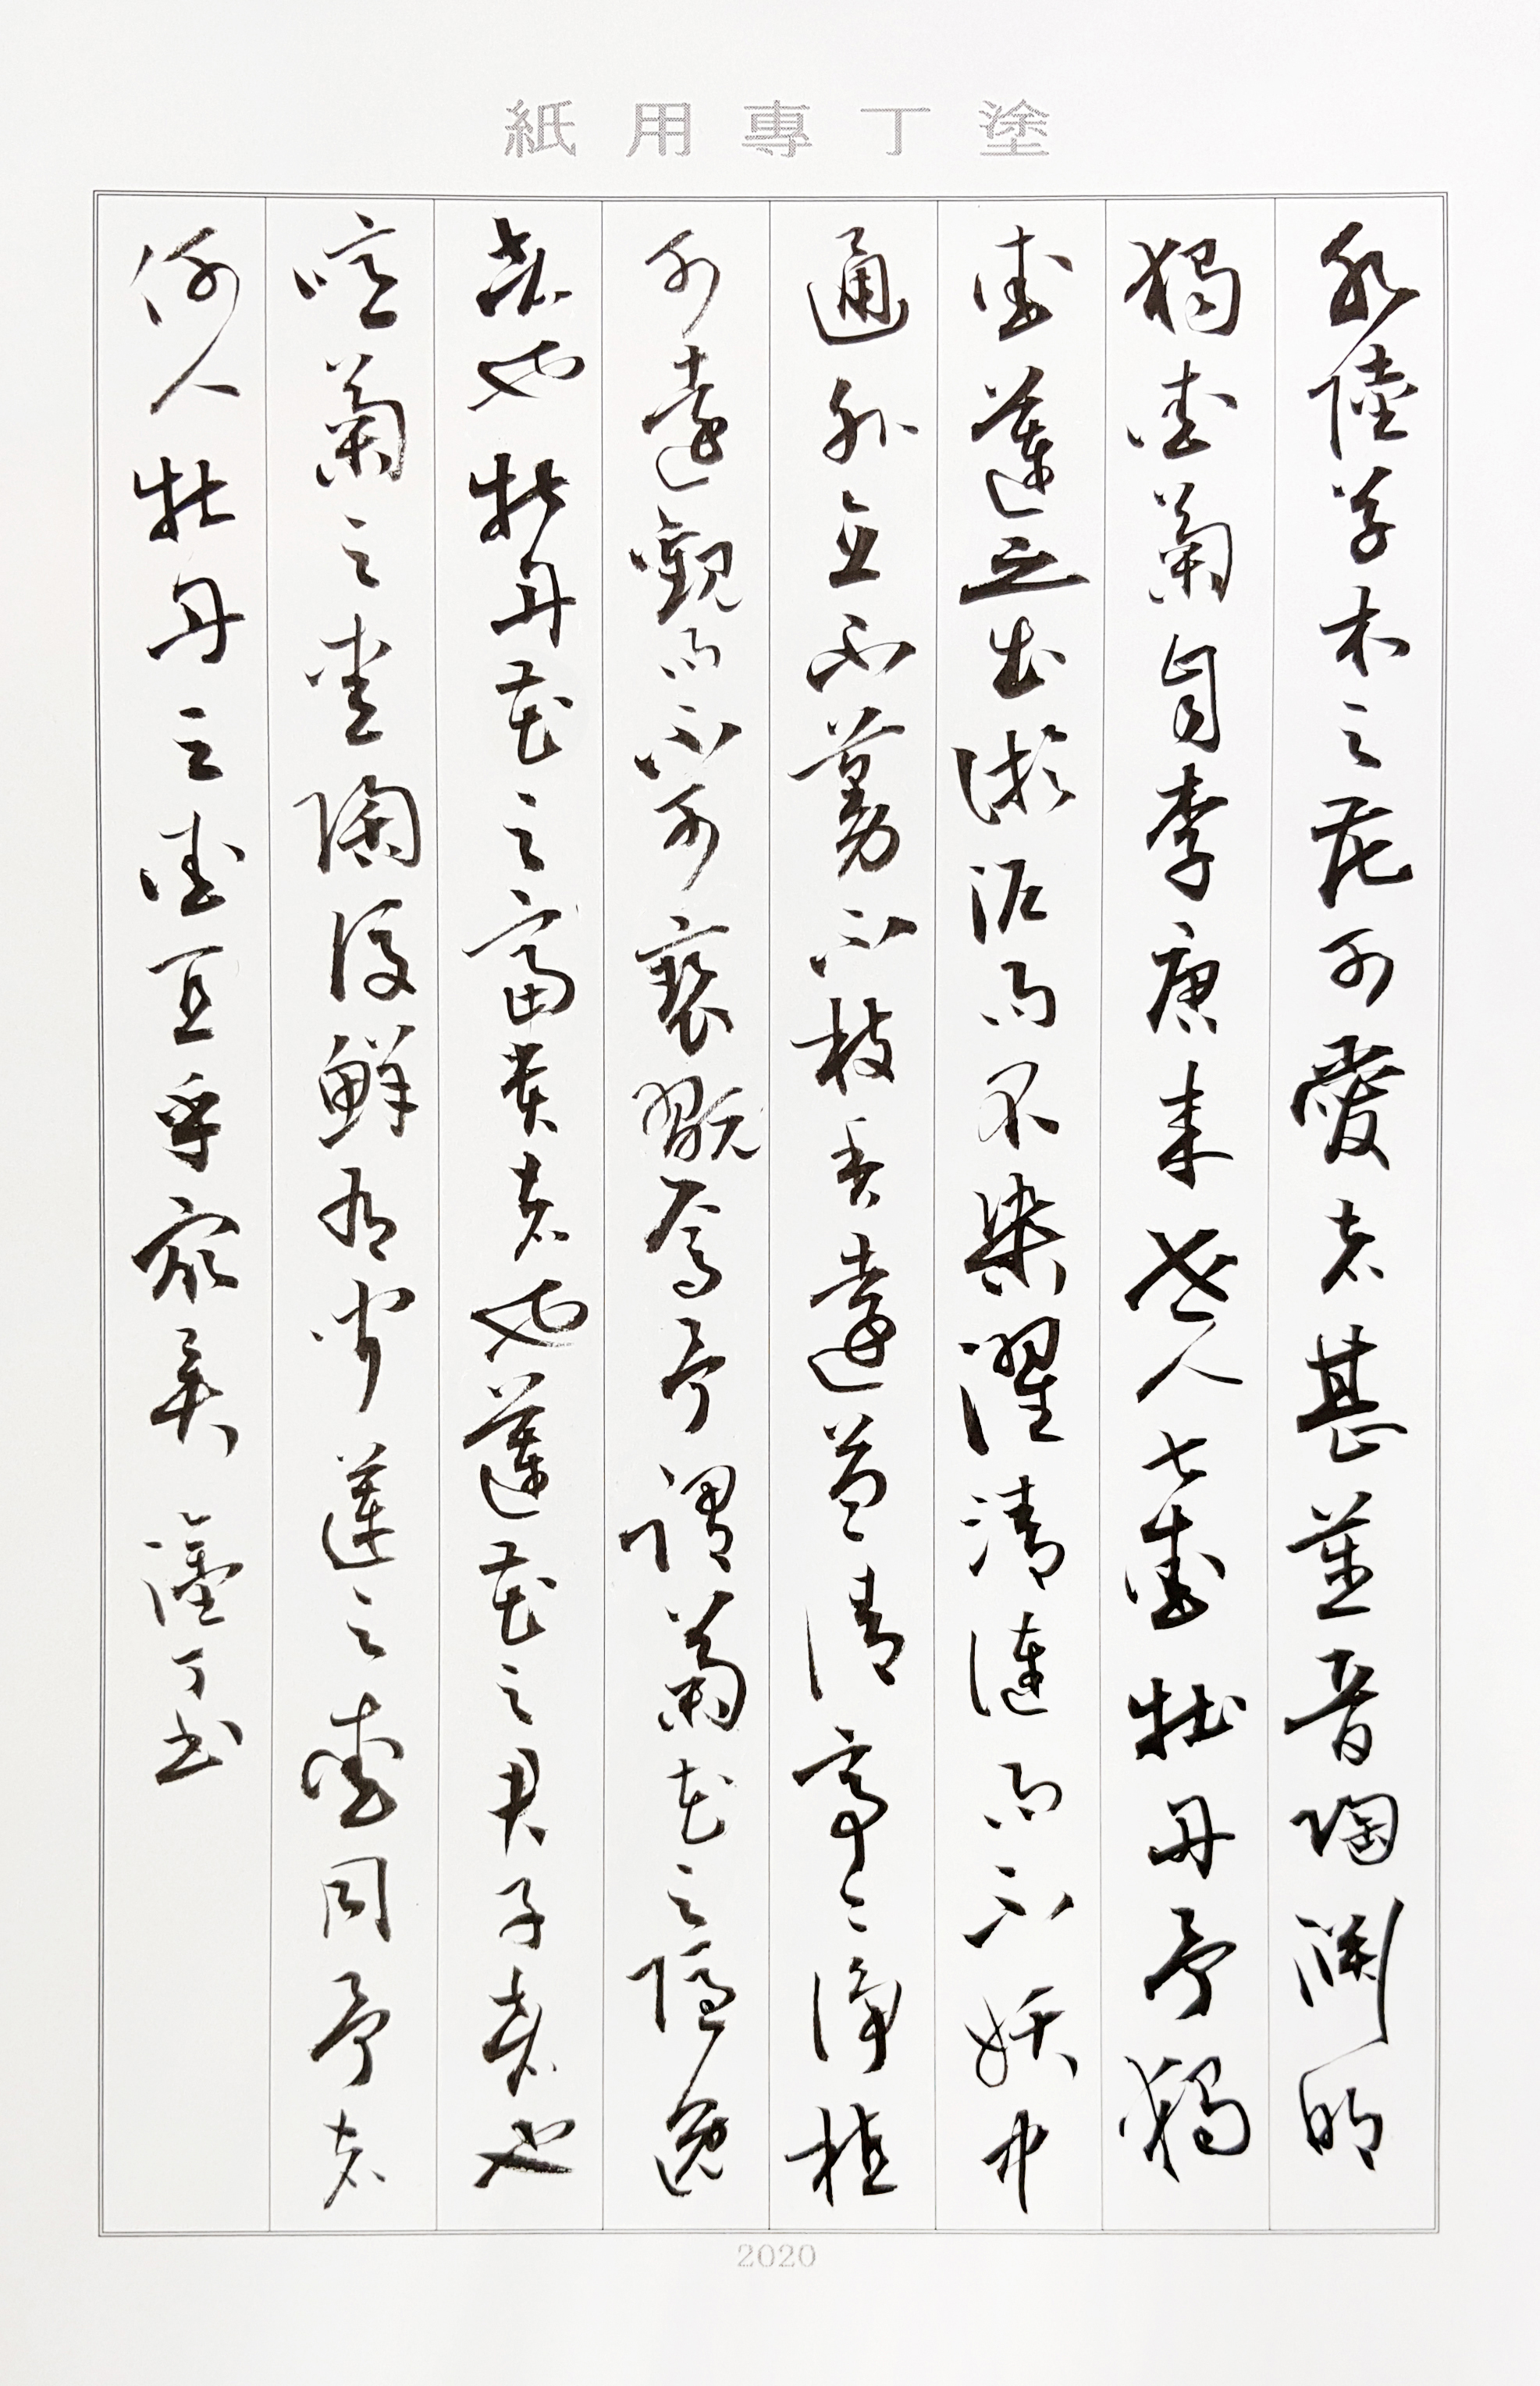 塗丁專用紙
水陸草木之花可愛者甚蕃晉陶渊明
獨愛菊自李唐来世人甚愛牡丹予獨
愛蓮之出淤泥而不染濯清漣而不妖中
通外直不蔓不枝香遠益清亭〻淨植
可遠觀而不可褻翫焉予謂菊花之隱逸
者也牡丹花之富貴者也蓮花之君子者也
噫菊之愛陶後鮮有聞蓮之愛同予者
何人牡丹之愛宜乎衆矣 塗丁书
2020